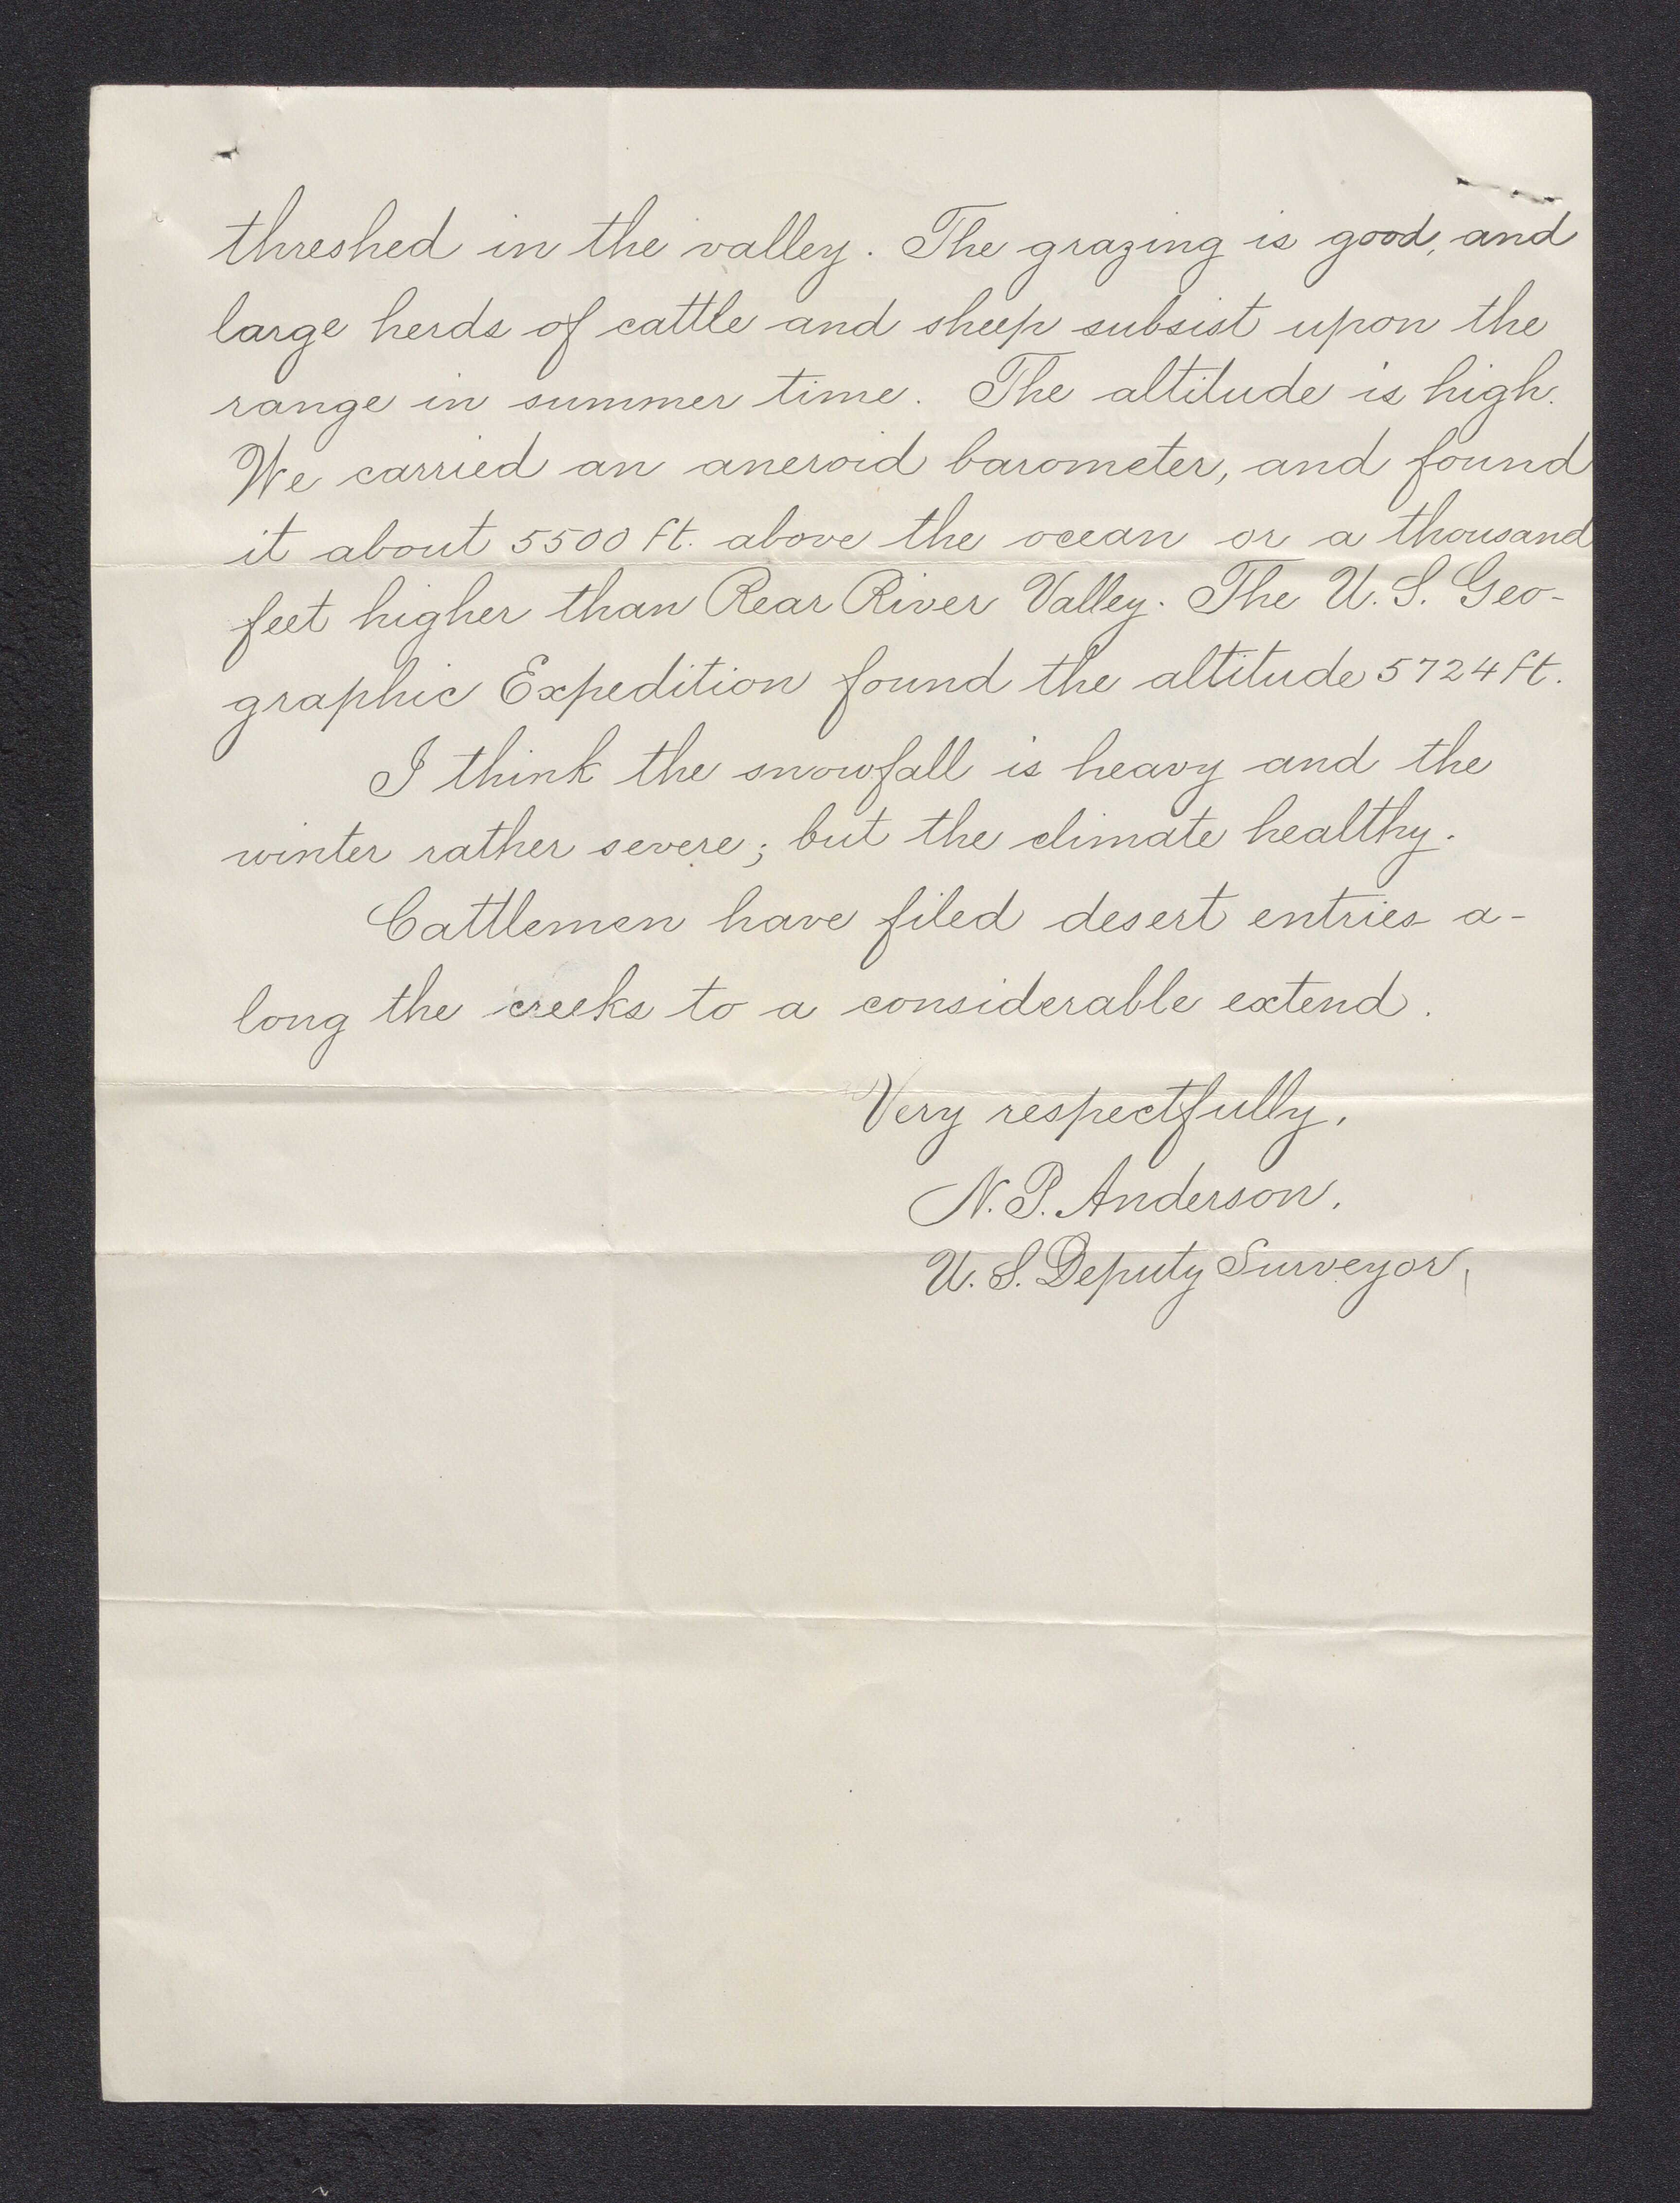 threshed in the valley. The grazing is good, and
large herds of cattle and sheep subsist upon the
range in summer time. The altitude is high.
We carried an aneroid barometer, and found
it about 5500 ft. above the ocean or a thousand
feet higher than Rear River Valley. The U. S. Geo-
graphic Expedition found the altitude 5724 ft.
I think the snowfall is heavy and the
winter rather severe; but the climate healthy.
Cattlemen have filed desert entries a-
long the creeks to a considerable extend.
Very respectfully,
N. P. Anderson,
U. S. Deputy Surveyor,